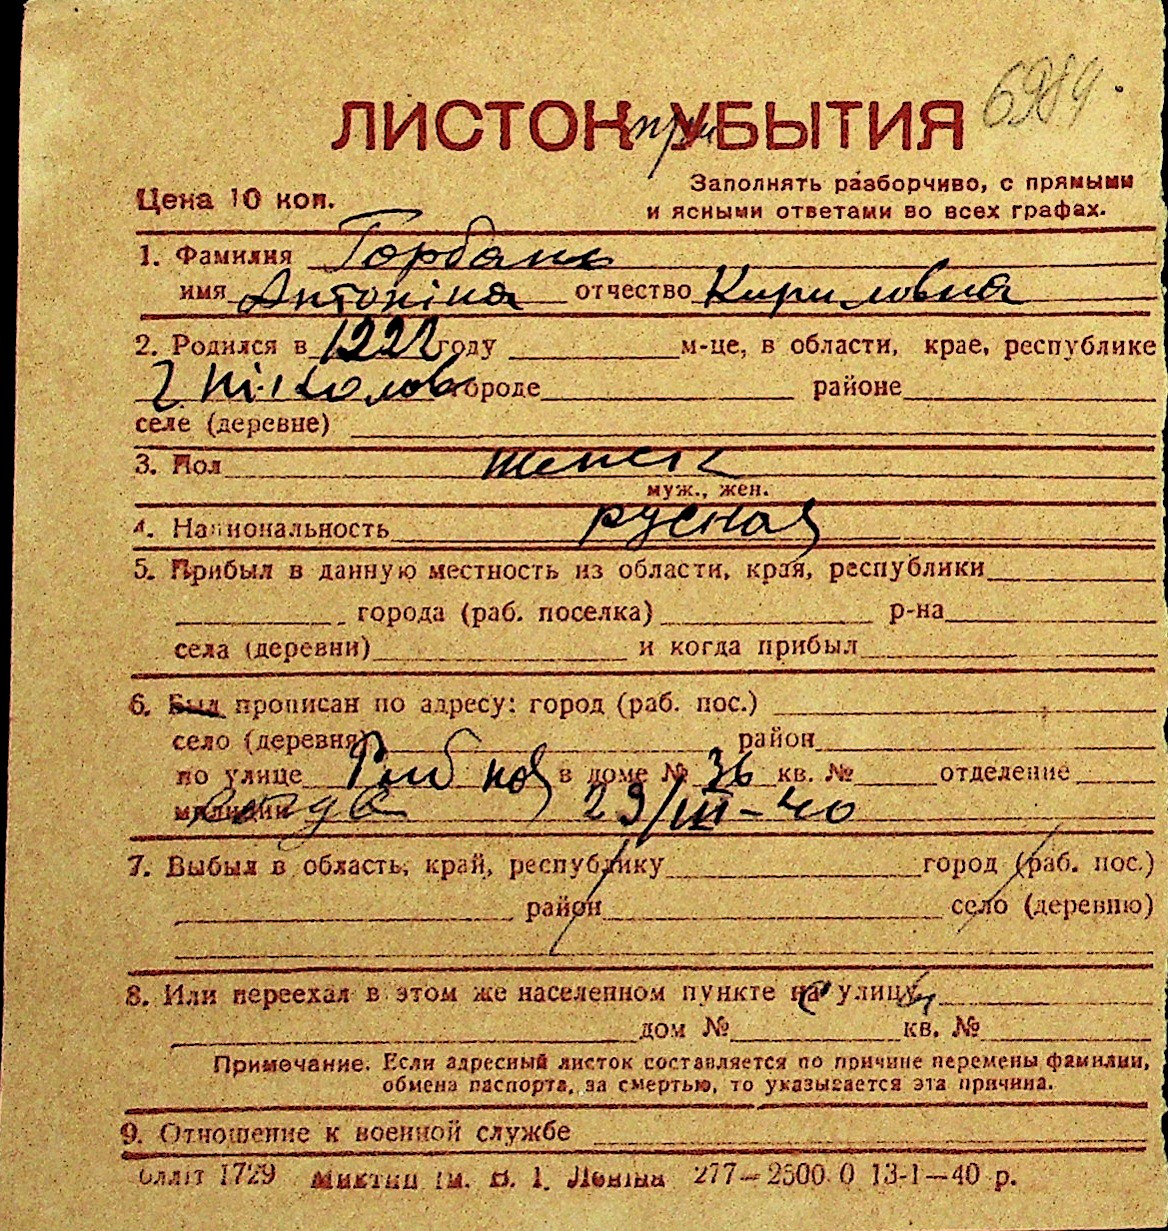 6984
ЛИСТОК при УБЫТИЯ
Цена 10 коп.
Заполнять разборчиво, с прямыми
и ясными ответами во всех графах.
1. Фамилия Горбань
имя Антоніна отчество Кириловна
2. Родился в 1922 году м-це, в области, крае, республике
г Ніколов городе районе
селе (деревне)
3. Пол женск
муж., жен.
4. Национальность русная
5. Прибыл в данную местность из области, края, республики
города (раб. поселка) р-на
села (деревни) и когда прибыл
6. Был прописан по адресу: город (раб. пос.)
село (деревня) район
по улице Рибная в доме № 36 кв. № отделение
милиции 29/III-40
7. Выбыл в область, край, республику город (раб. пос.)
район село (деревню)
8. Или переехал в этом же населенном пункте на улицу
дом № кв. №
Примечание. Если адресный листок составляется по причине перемены фамилии,
обмена паспорта, за смертью, то указывается эта причина.
9. Отношение к военной службе
1729 ім. В. І. Леніна 277—2500.0 13-1—40 р.